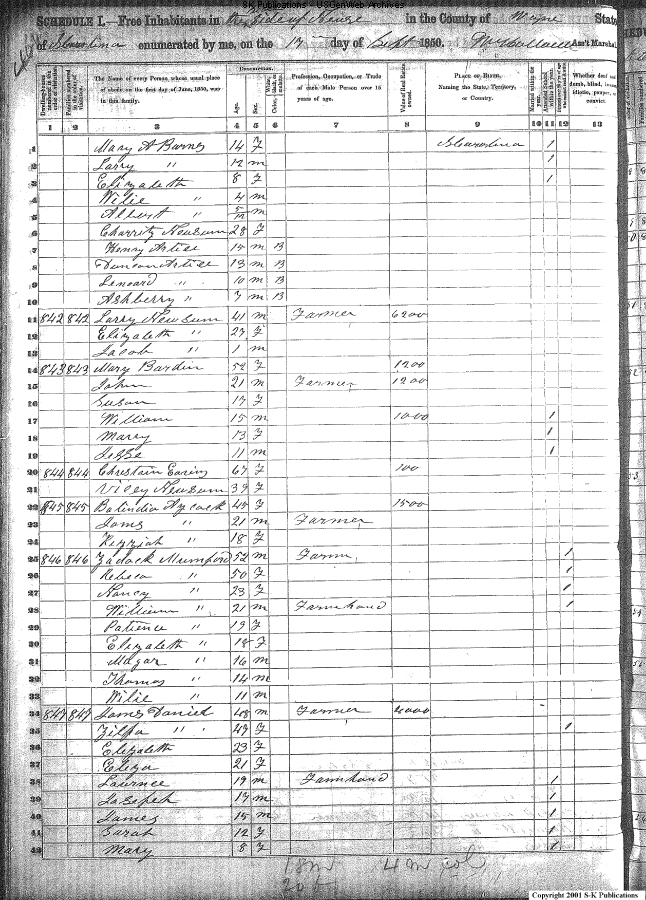 S-K Publications - USGenWeb Archives
SCHEDULE I.—Free Inhabitants in the Side of Neuse in the County of Wayne State
of N Carolina enumerated by me, on the 17 day of Sept 1850. Ass't Marshal
Dwelling-houses numbered in the order of visitation. Families numbered in the order of visitation. The Name of every Person whose usual place of abode on the first day of June, 1850, was in this family. Description. Age. Sex. White, Color, black, or mulatto. Profession, Occupation, or Trade of each Male Person over 15 years of age. Value of Real Estate owned. Place of Birth, Naming the State, Territory, or Country. Married within the year. Attended School within the year. Whether deaf and dumb, blind, insane, idiotic, pauper, or convict.
1 2 3 4 5 6 7 8 9 10 11 12 13
1 Mary A Barnes 14 F N Carolina 1
2 Larry " 12 m 1
3 Elizabeth 8 F 1
4 Wilie " 4 m
5 Albert " 5/12 m
6 Charrity Newsum 28 F
7 Henry Artise 15 m B
8 Duncan Artise 13 m B
9 Lenoard " 10 m B
10 Ashberry " 7 m B
11 842 842 Larry Newsum 41 m Farmer 6200
12 Elizabeth " 27 F
13 Jacob " 1 m
14 843 843 Mary Bardin 52 F 1200
15 John 21 m Farmer 1200
16 Susan 17 F
17 William 15 m 1000 1
18 Marry 13 F 1
19 Jesse 11 m 1
20 844 844 Christain 67 F 100
21 Vicey Newsum 39 F
22 845 845 Aycock 45 F 1500
23 Jams " 21 m Farmer
24 Kezziah " 18 F
25 846 846 Zadock Mumford 52 m Farm 1
26 Rebeca " 50 F 1
27 Nancy " 23 F 1
28 William " 21 m Farmhand 1
29 Patience " 19 F
30 Elizabeth " 18 F
31 " 16 m
32 Thomas " 14 m
33 Wilie " 11 m
34 847 847 James Daniel 48 m Farmer 4000
35 Zilpa " 47 F 1
36 Elizabeth 23 F
37 Eliza 21 F
38 Lawrnce 19 m Farmhand 1
39 Joseph 17 m 1
40 James 15 m 1
41 Sarah 12 F 1
42 Mary 8 F 1
18 m 4 m col
20 f
Copyright 2001 S-K Publications